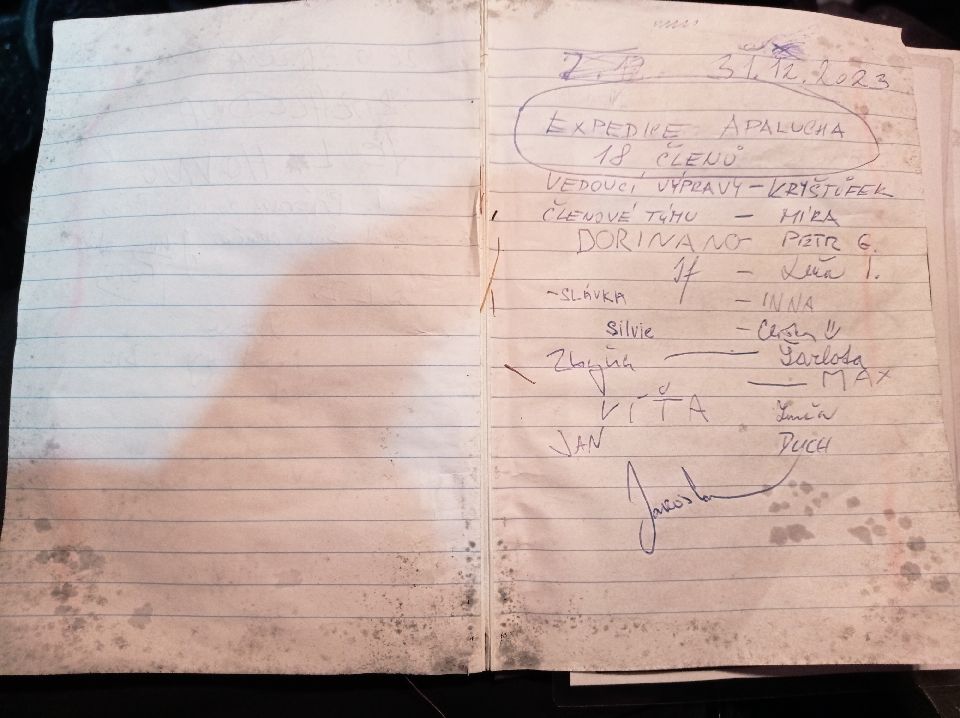 31.12.2023
EXPEDICE APALUCHA
18 ČLENŮ
VEDOUCÍ VÝPRAVY – KRYŠTŮFEK
ČLENOVÉ TÝMU – MÍRA
DORINANO PETR G.
– I.
– SLÁVKA – INNA
Silvie –
Zbyňa — Šarlota
— MAX
VÍŤA
JAN DUCH